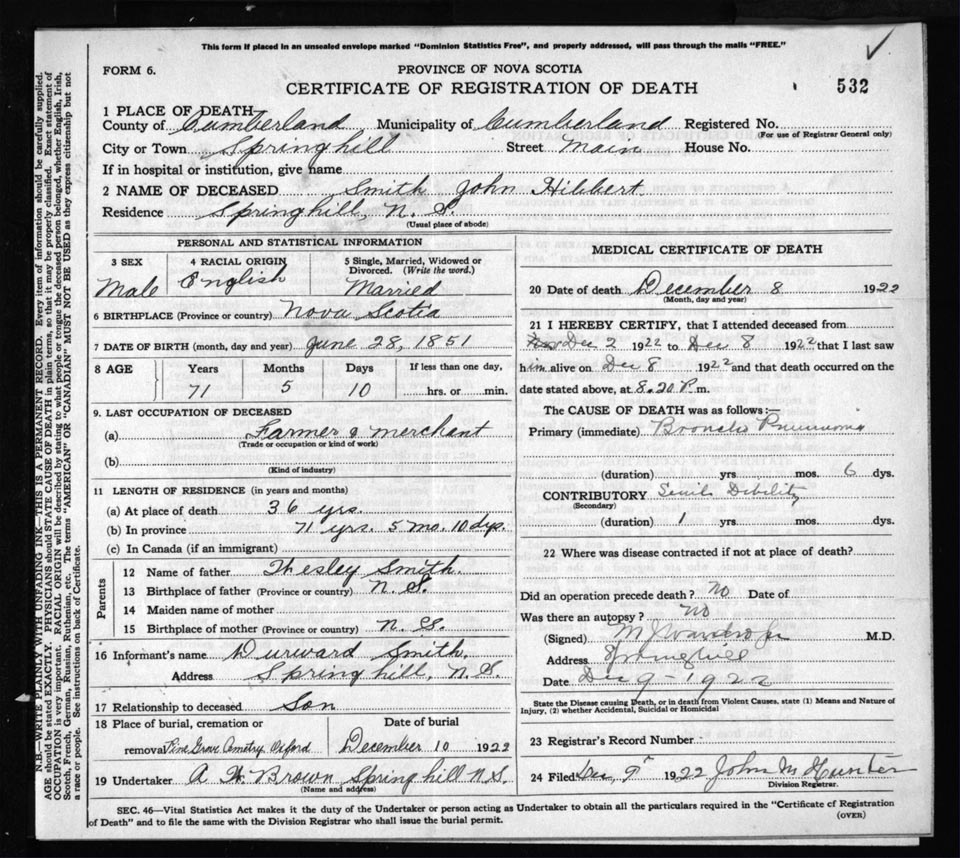 This form if placed in an unsealed envelope marked "Dominion Statistics Free", and properly addressed, will pass through the mails "FREE."
FORM 6.
PROVINCE OF NOVA SCOTIA
CERTIFICATE OF REGISTRATION OF DEATH
532
1 PLACE OF DEATH
County of Cumberland Municipality of Cumberland Registered No.
(For use of Registrar General only)
City or Town Springhill Street Main House No.
If in hospital or institution, give name
2 NAME OF DECEASED Smith John Hibbert
Residence Springhill, N. S.
(Usual place of abode)
PERSONAL AND STATISTICAL INFORMATION
3 SEX 4 RACIAL ORIGIN 5 Single, Married, Widowed or Divorced. (Write the word.)
Male English Married
6 BIRTHPLACE (Province or country) Nova Scotia
7 DATE OF BIRTH (month, day and year) June 28, 1851
8 AGE Years Months Days If less than one day,
71 5 10 hrs. or min.
9. LAST OCCUPATION OF DECEASED
(a) Farmer & merchant
(Trade or occupation or kind of work)
(b)
(Kind of industry)
11 LENGTH OF RESIDENCE (in years and months)
(a) At place of death 36 yrs.
(b) In province 71 yrs. 5 mo. 10 dys.
(c) In Canada (if an immigrant)
Parents
12 Name of father Thesley Smith.
13 Birthplace of father (Province or country) N. S.
14 Maiden name of mother
15 Birthplace of mother (Province or country) N. S.
16 Informant's name Durward Smith.
Address Springhill, N. S.
17 Relationship to deceased Son
18 Place of burial, cremation or Date of burial
removal Pine Grove Cemetry Oxford December 10 1922
19 Undertaker A. W. Brown Springhill N. S.
(Name and address)
MEDICAL CERTIFICATE OF DEATH
20 Date of death December 8 1922
(Month, day and year)
21 I HEREBY CERTIFY, that I attended deceased from
Dec 2 1922 to Dec 8 1922 that I last saw
him alive on Dec 8 1922 and that death occurred on the
date stated above, at 8.20 P.m.
The CAUSE OF DEATH was as follows:—
Primary (immediate) Broncho Pneumonia
(duration) yrs mos. 6 dys.
CONTRIBUTORY Senile Debility
(Secondary)
(duration) 1 yrs mos. dys.
22 Where was disease contracted if not at place of death?
Did an operation precede death? No Date of
Was there an autopsy? No
(Signed) M.D.
Address Springhill
Date Dec 9 - 1922
State the Disease causing Death, or in death from Violent Causes, state (1) Means and Nature of
Injury, (2) whether Accidental, Suicidal or Homicidal
23 Registrar's Record Number
24 Filed Dec 9 1922 John M Hunter
Division Registrar.
SEC. 46—Vital Statistics Act makes it the duty of the Undertaker or person acting as Undertaker to obtain all the particulars required in the "Certificate of Registration
of Death" and to file the same with the Division Registrar who shall issue the burial permit.
(OVER)
N.B.—WRITE PLAINLY WITH UNFADING INK—THIS IS A PERMANENT RECORD. Every item of information should be carefully supplied.
AGE should be stated EXACTLY. PHYSICIANS should STATE CAUSE OF DEATH in plain terms, so that it may be properly classified. Exact statement of
OCCUPATION is very important. RACIAL ORIGIN will be described by stating to what people or tongue the deceased person belonged, whether English, Irish,
Scotch, French, German, Russian, Ruthenian, etc. The terms "AMERICAN" OR "CANADIAN" MUST NOT BE USED as they express citizenship but not
a race or people. See instructions on back of Certificate.